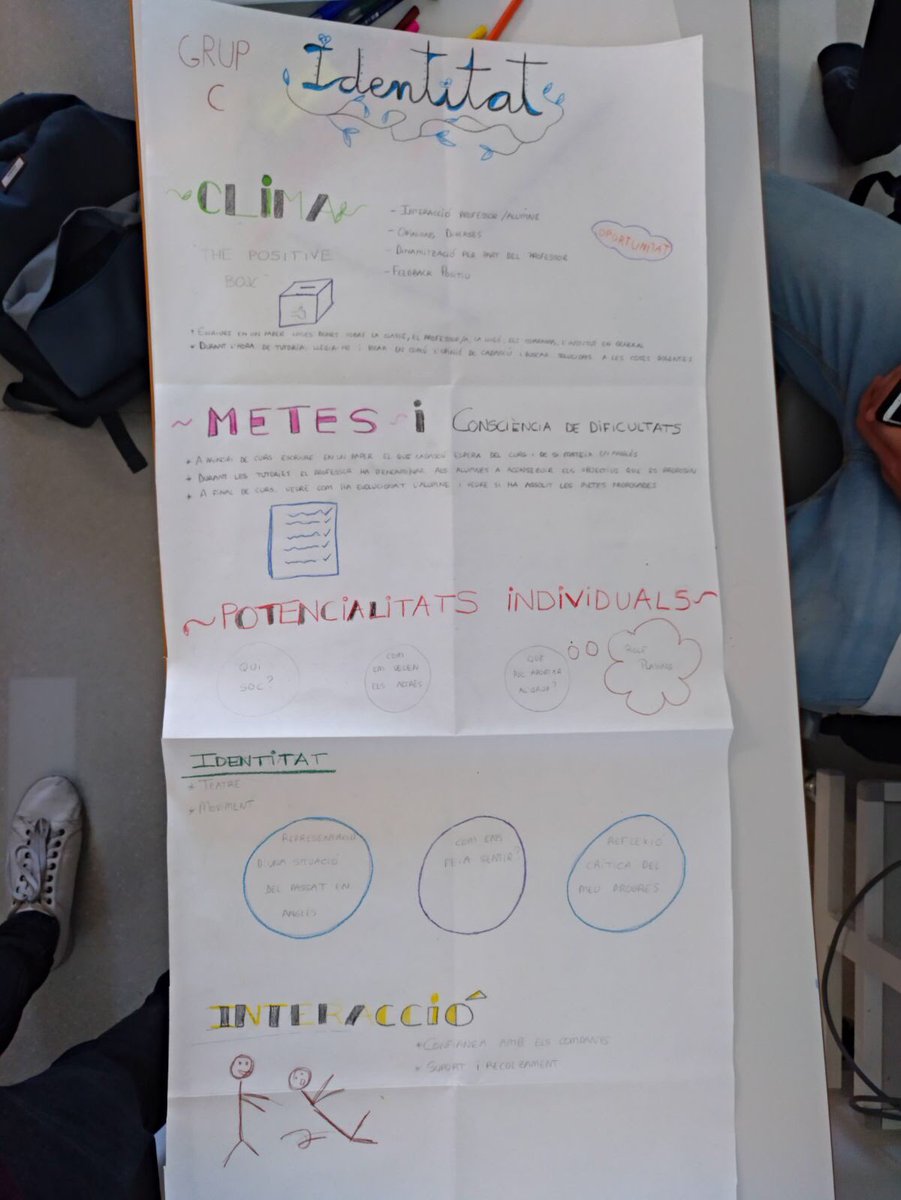 GRUP
C
Identitat
CLIMA
- INTERACCIÓ PROFESSOR/ALUMNE
- OPINIONS DIVERSES
- DINAMITZACIÓ PER PART DEL PROFESSOR
- FEEDBACK POSITIU
OPORTUNITAT
THE POSITIVE
BOX
* ESCRIURE EN UN PAPER COSES BONES SOBRE LA CLASSE, EL PROFESSOR/A, LA LLIÇÓ, ELS COMPANYS, L'INSTITUT EN GENERAL
* DURANT L'HORA DE TUTORIA, LLEGIR-HO I POSAR EN COMÚ L'OPINIÓ DE CADASCÚ I BUSCAR SOLUCIONS A LES COSES DOLENTES
METES i CONSCIÈNCIA DE DIFICULTATS
* A PRINCIPI DE CURS ESCRIURE EN UN PAPER EL QUE CADASCÚ ESPERA DEL CURS I DE SI MATEIX EN ANGLÈS
* DURANT LES TUTORIES EL PROFESSOR HA D'ENCAMINAR ALS ALUMNES A ACONSEGUIR ELS OBJECTIUS QUE ES PROPOSIN
* A FINAL DE CURS, VEURE COM HA EVOLUCIONAT L'ALUMNE I VEURE SI HA ASSOLIT LES METES PROPOSADES
POTENCIALITATS INDIVIDUALS
QUI
SOC?
COM
EM VEUEN
ELS ALTRES
QUÈ
PUC APORTAR
AL GRUP?
ROLE
PLAYING
IDENTITAT
* TEATRE
* MOVIMENT
REPRESENTACIÓ
D'UNA SITUACIÓ
DEL PASSAT EN
ANGLÈS
COM ENS
FE-A SENTIR?
REFLEXIÓ
CRÍTICA DEL
MEU PROGRÉS
INTERACCIÓ
* CONFIANÇA AMB ELS COMPANYS
* SUPORT I RECOLZAMENT